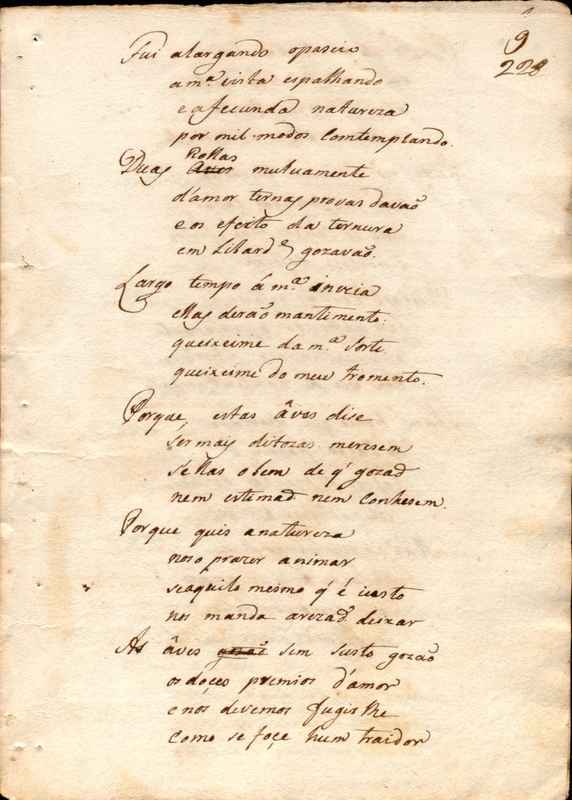 9
228
Fui alargando opaseio
a mª vista espalhando
e a fecunda natureza
por mil modos comtemplando.
Rollas
Duas Aves mutuamente
d'amor ternas provas davaõ
e os efeito da ternura
em Libardᵉ gozavaõ.
Largo tempo á mª inveia
ellas deraõ mantimento.
queixeime da mª sorte
queixeime do meu tromento.
Porque, estas âves dise
ser mays ditozas meresem
se ellas o bem de q' gozaõ
nem estimaõ nem conhesem.
Porque quis a natureza
noso prazer animar
se aquilo mesmo q' é iusto
nos manda a rezaõ deixar
As âves gozaõ sem susto gozaõ
os doçes premios d'amor
e nos devemos fugir lhe
como se foçe hum traidor